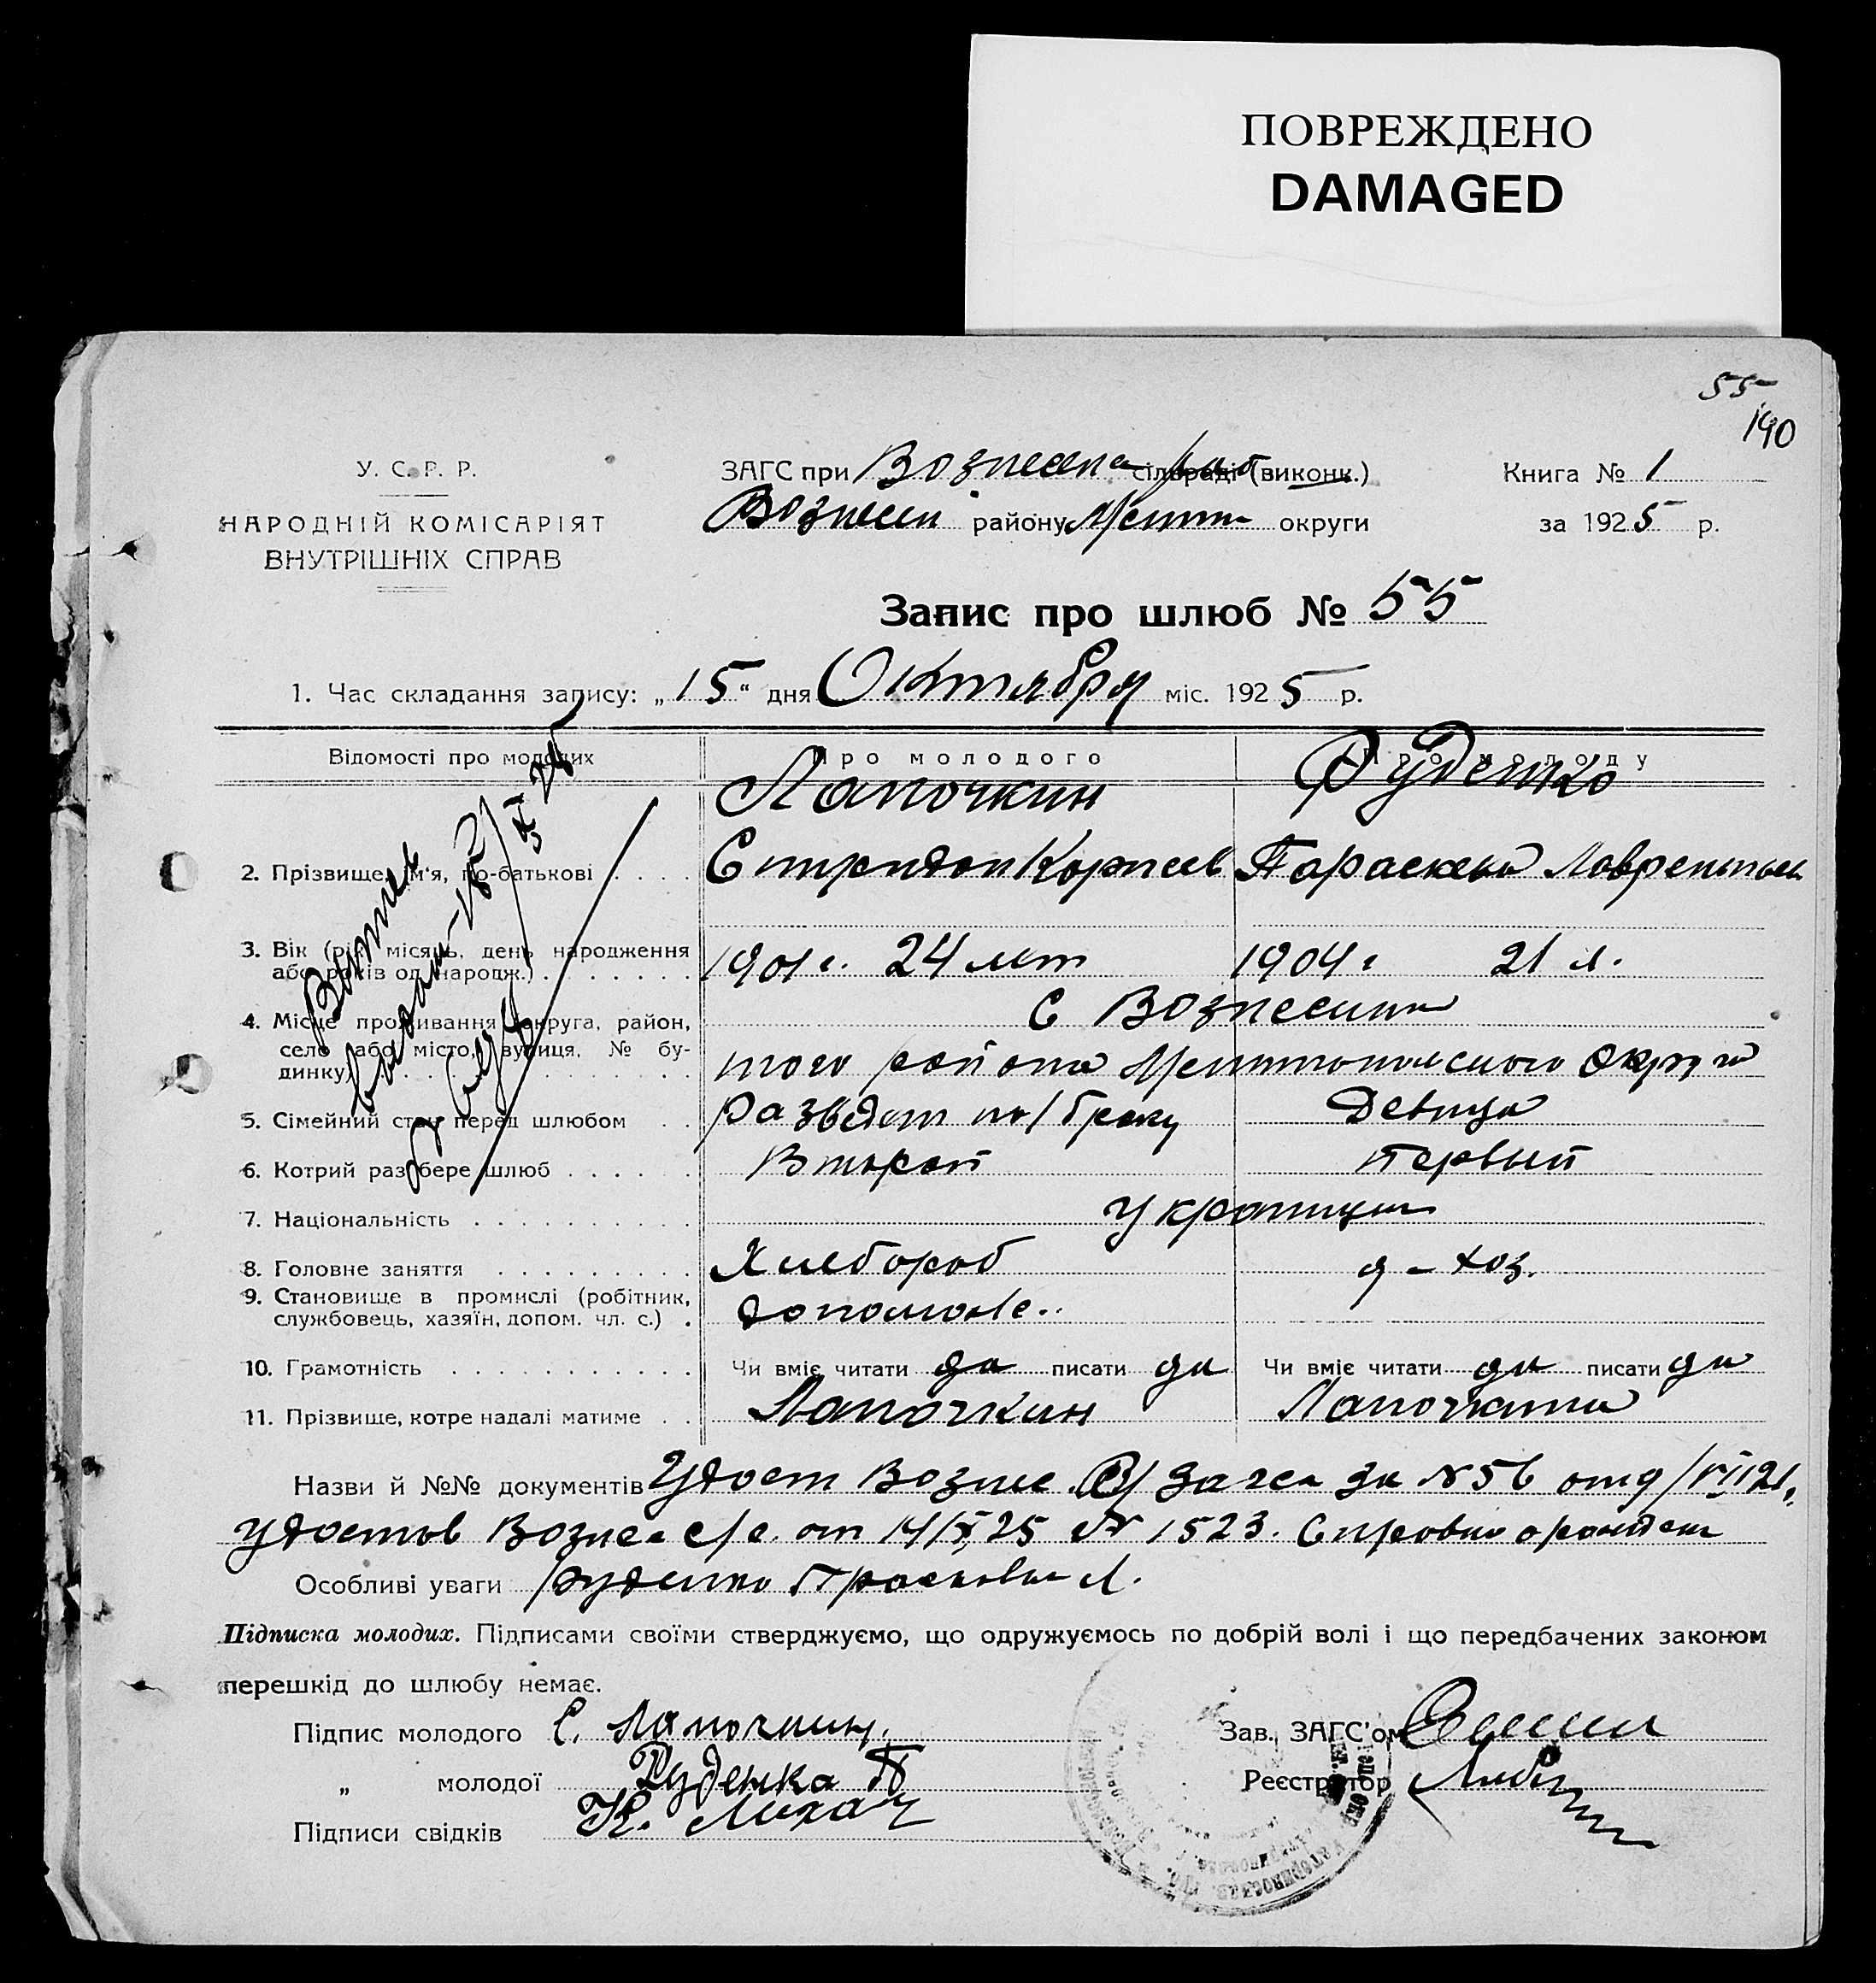 ПОВРЕЖДЕНО
DAMAGED
55
190
У. С. Р. Р.
НАРОДНІЙ КОМІСАРІЯТ
ВНУТРІШНІХ СПРАВ
ЗАГС при Вознесен сільраді (виконк.)
Вознесен району Мелит округи
Книга № 1
за 1925 р.
Запис про шлюб № 55
1. Час складання запису: „15“ дня Октября міс. 1925 р.
Відомості про молодих Про молодого Про молоду
Лапочкин Руденко
2. Прізвище, ім'я, по-батькові . . . . Спиридон Корнеев Параскева Лаврентьев
3. Вік (рік, місяць, день народження або років од народж.) . . . . . . . 1901 г. 24 лет 1904 г 21 л.
4. Місце проживання (округа, район, село або місто, вулиця, № будинку) С Вознесенки
того района Мелитопольского Округа
5. Сімейний стан перед шлюбом . . Разведен по 1 браку Девица
6. Котрий раз бере шлюб . . . . . . Второй первый
7. Національність . . . . . . . . . . Украинцы
8. Головне заняття . . . . . . . . . Хлебороб д-хоз.
9. Становище в промислі (робітник, службовець, хазяїн, допом. чл. с.) .
10. Грамотність . . . . . . . . . . . Чи вміє читати да писати да Чи вміє читати да писати да
11. Прізвище, котре надалі матиме . . Лапочкин Лапочкина
Назви й №№ документів Удост Возне Загса за №56 от 9/VII 21,
Удостов Возне с/с. от 14/X 25 № 1523.
Особливі уваги Руденко Прасковьи Л.
Підписка молодих. Підписами своїми стверджуємо, що одружуємось по добрій волі і що передбачених законом
перешкід до шлюбу немає.
Підпис молодого С. Лапочкин.
„ молодої Руденка П
Підписи свідків К.
Зав. ЗАГС'ом
Реєстратор